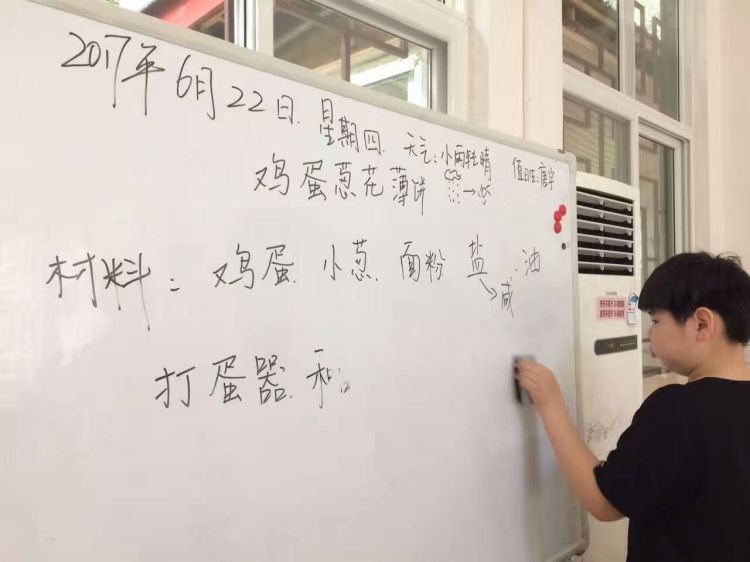 2017年6月22日.星期四.天气:小雨转晴
值日班:唐宇
鸡蛋葱花薄饼
材料:鸡蛋.小葱.面粉 盐.油
咸
打蛋器.